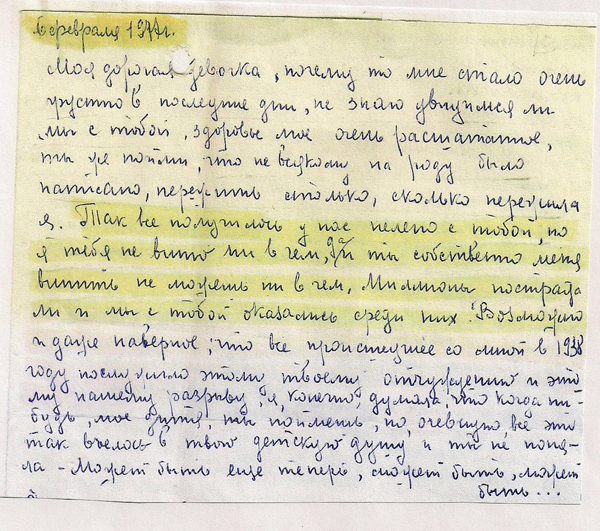 6 февраля 1977г.
Моя дорогая девочка, почему то мне стало очень
грустно в последние дни, не знаю увидимся ли
мы с тобой, здоровье мое очень расшатанное,
ты уж пойми, что не всякому на роду было
написано, пережить столько, сколько пережила
я. Так все получилось у нас нелепо с тобой, но
я тебя не виню ни в чем, да и ты собственно меня
винить не можешь ни в чем, Миллионы пострада
ли и мы с тобой оказались среди них. Возможно
и даже наверное, что все происшедшее со мной в 1938
году послужило этому твоему отчуждению и это
му нашему разрыву, я, конечно, думала, что когда ни-
будь, мое дитя, ты поймешь, но, очевидно, все это
так въелось в твою детскую душу и ты не поня-
ла - Может быть еще теперь, может быть, может
быть...